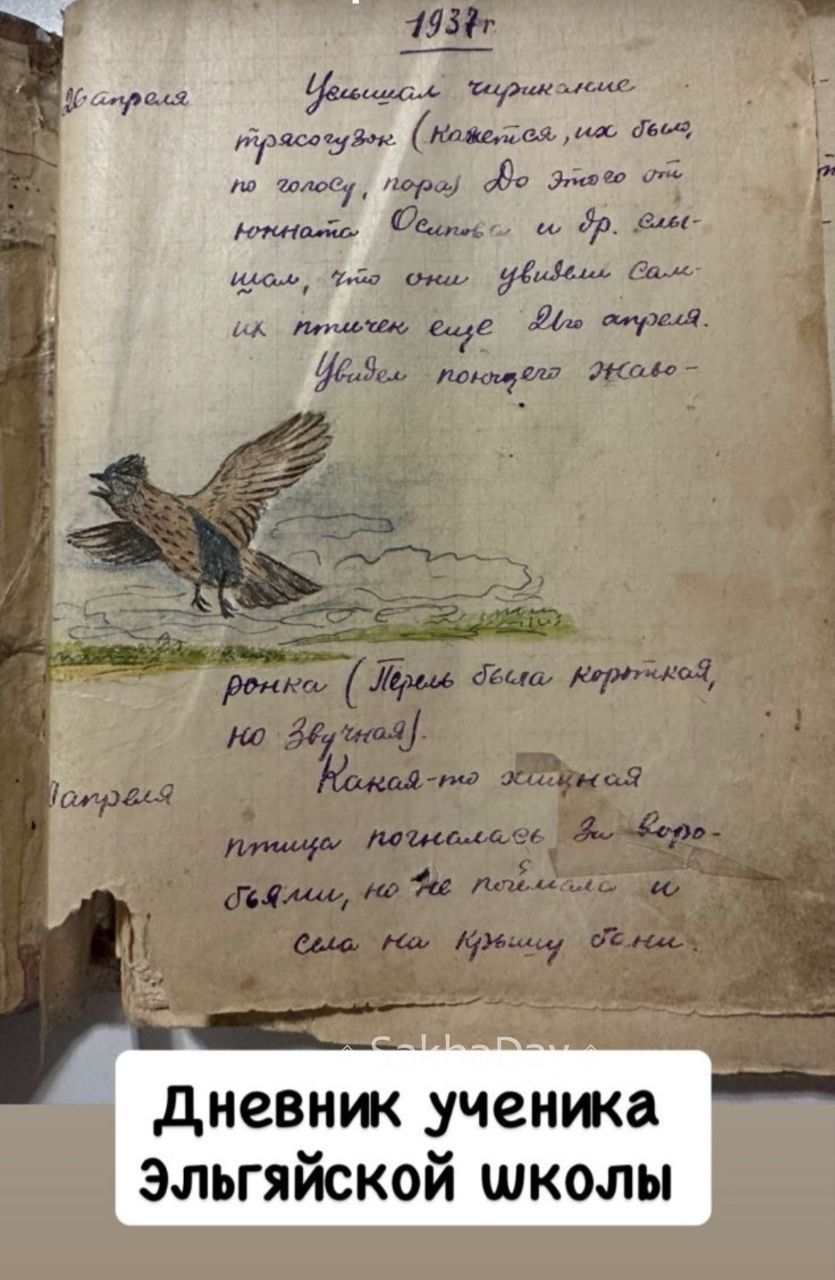 1937г
26 апреля
Услышал чирикание
трясогузок (кажется, их было,
по голосу, пара) До этого от
юнната Осипова и др. слы-
шал, что они увидели сам-
их птичек еще 21го апреля.
Увидел поющего жаво-
ронка (Трель была короткая,
но звучная).
апреля
Какая-то хищная
птица погналась за воро-
бьями, но не поймала и
села на крышу бани.
SakhaDay
Дневник ученика
Эльгяйской школы